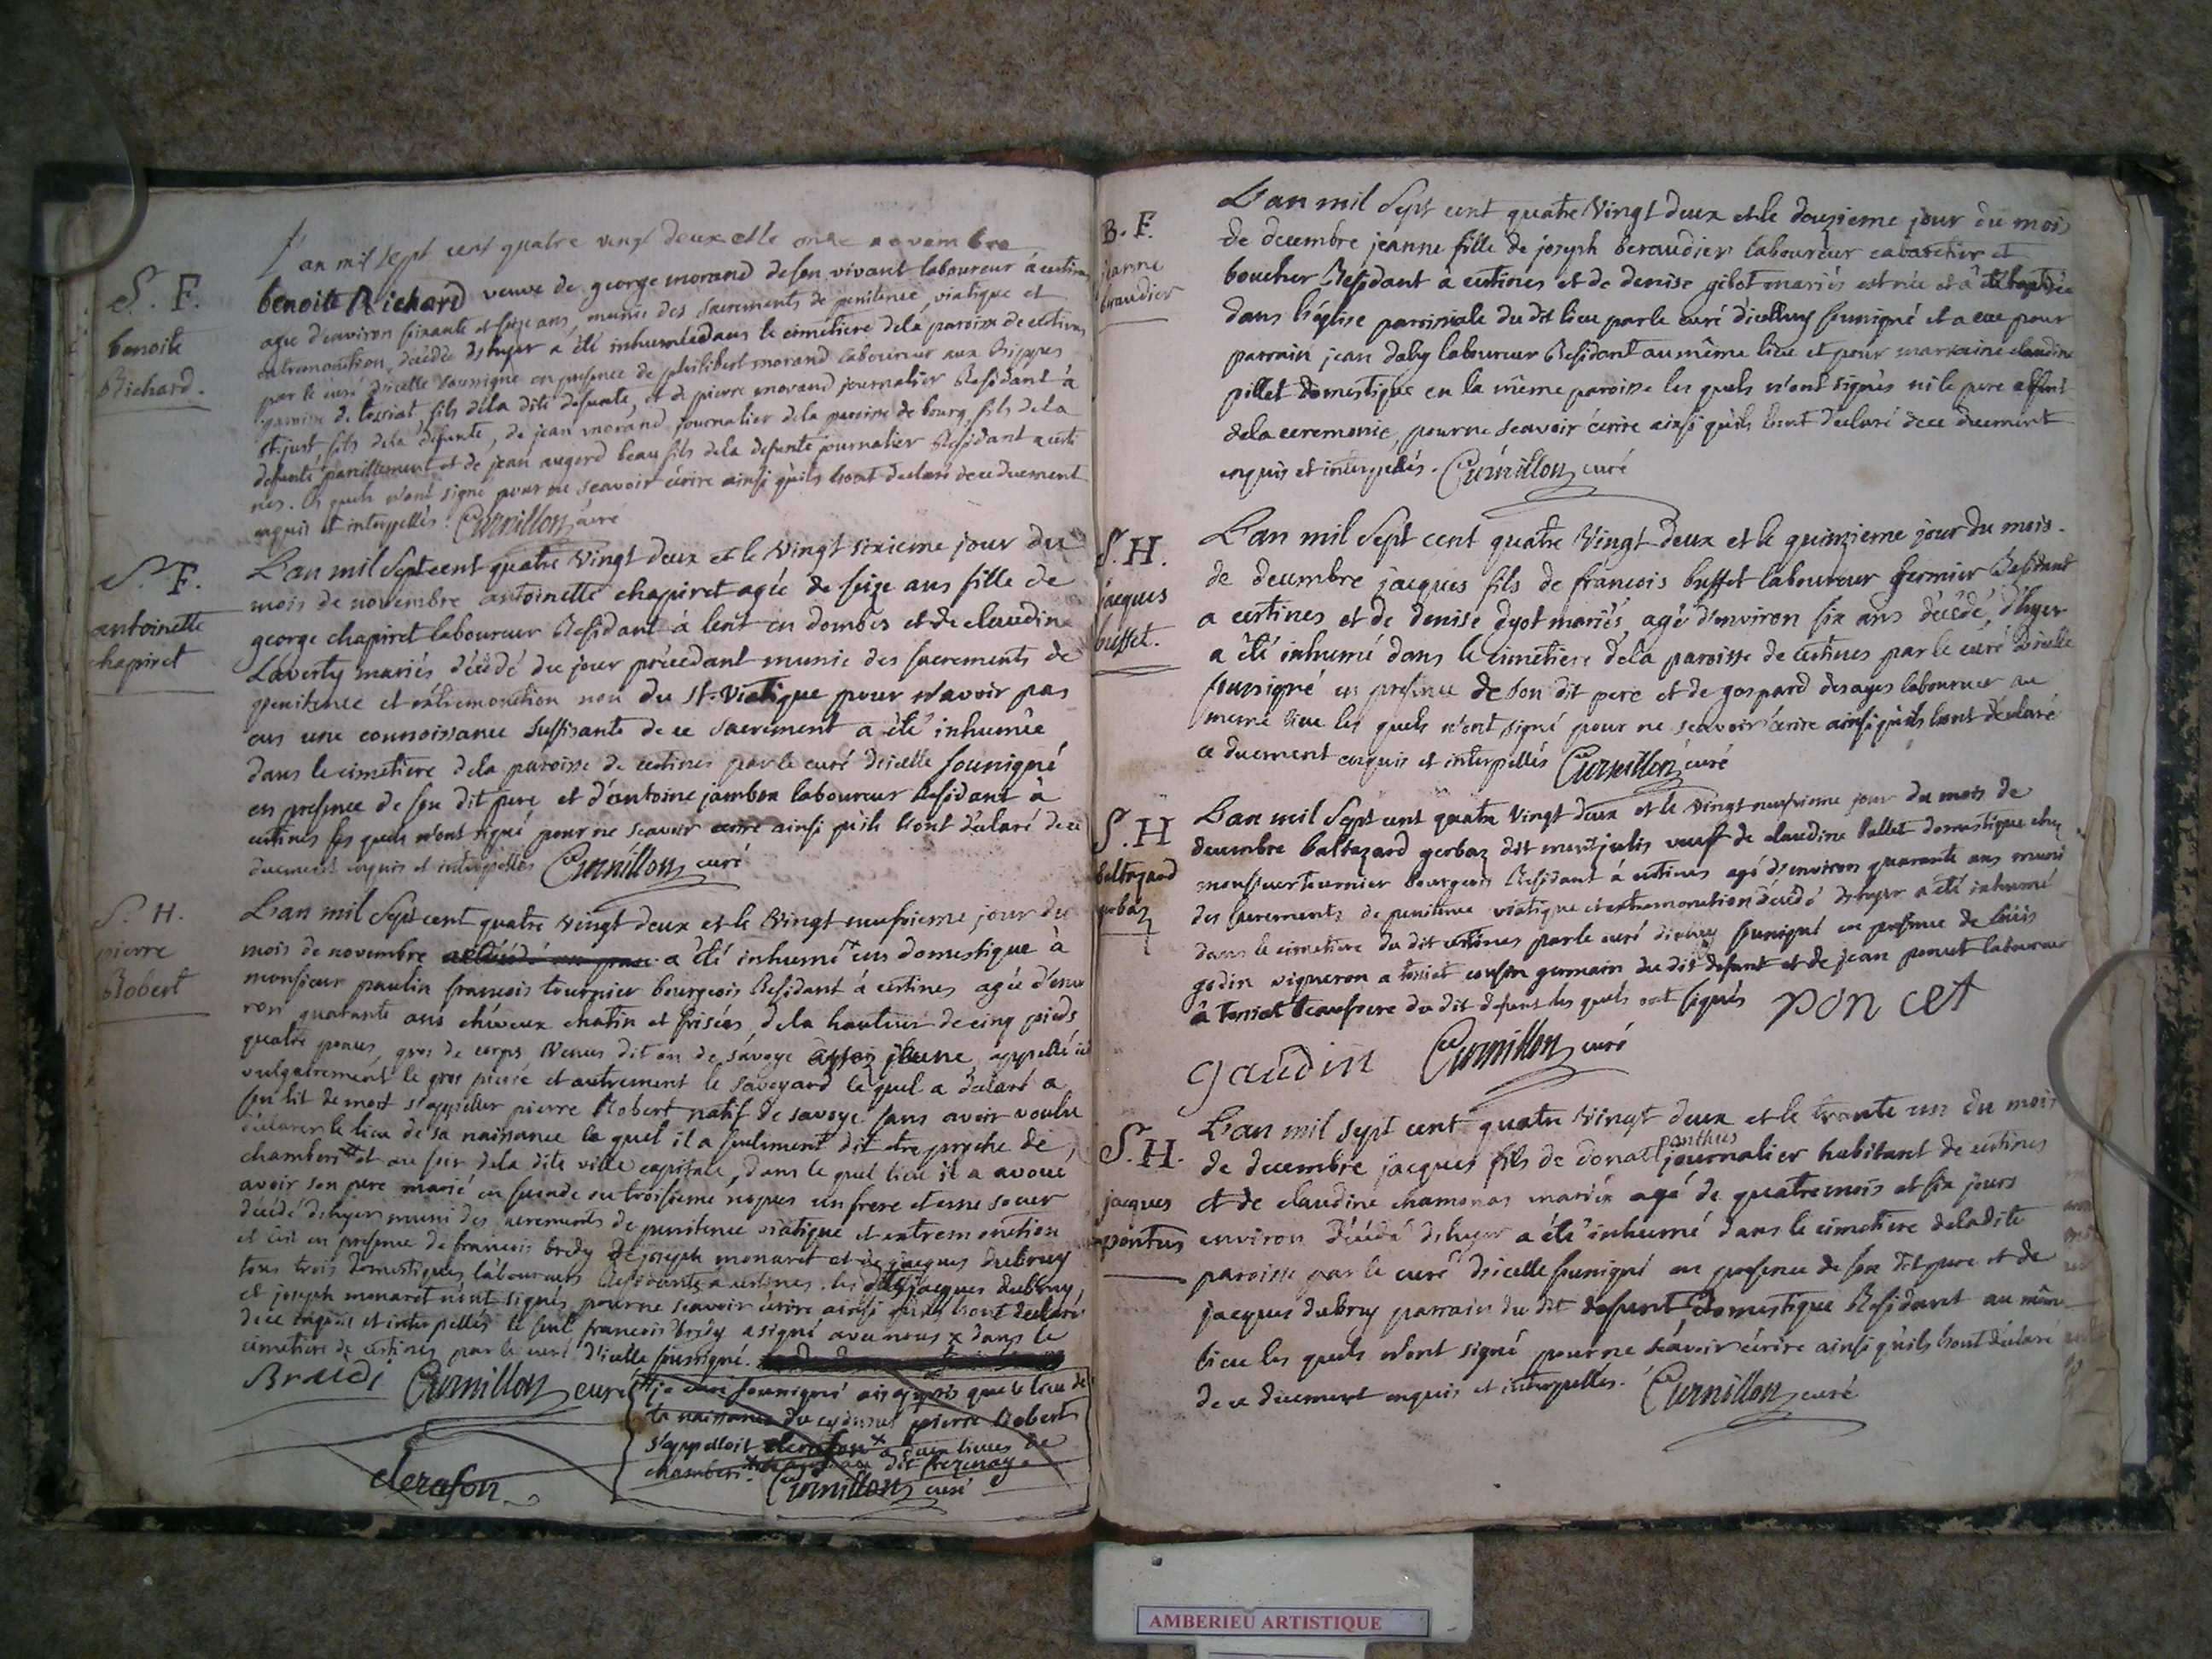 S. F.
benoite
Richard.
L'an mil sept cent quatre vingt deux et le onze novembre
benoite Richard veuve de george morand de son vivant laboureur à certines
agée d'environ soixante et seize ans, munie des sacrements de penitence, viatique et
extremonction, décédée d'hyer a été inhumée dans le cimetiere de la paroisse de certines
par le curé d'icelle soussigné en presence de philibert morand laboureur aux
paroisse de tossiat fils de la dite defunte, et de pierre morand journalier Residant à
st. just, fils de la defunte, de jean morand journalier de la paroisse de bourg, fils de la
defunte pareillement et de jean augerd beau fils de la defunte journalier Residant a certi
nes. les quels n'ont signé pour ne sçavoir écrire ainsi qu'ils l'ont declaré de ce duement
enquis et interpellés. Curnillon curé
S. F.
antoinette
chapiret
L'an mil sept cent quatre vingt deux et le vingt sixieme jour du
mois de novembre antoinette chapiret agée de seize ans fille de
george chapiret laboureur Residant à lent en dombes et de claudine
Laverty mariés décédé du jour précedant munie des sacrements de
penitence et extremonction non du St. Viatique pour n'avoir pas
eus une connoissance suffisante de ce sacrement a été inhumée
dans le cimetiere de la paroisse de certines par le curé d'icelle sousigné
en presence de son dit pere et d'antoine jambon laboureur Residant à
certines les quels n'ont signé pour ne scavoir ecrire ainsi qu'ils l'ont déclaré de ce
duement enquis et interpellés Curnillon curé
S. H.
pierre
Robert
L'an mil sept cent quatre vingt deux et le vingt neufvieme jour du
mois de novembre a été inhumé un domestique à
monsieur paulin francois tournier bourgeois Residant à certines agée d'envi
ron quarante ans cheveux chatin et frisées, de la hauteur de cinq pieds
quatre pouces, gros de corps venus dit on de savoye assez jeune appellé ici
vulgairement le gros pierre et autrement le savoyard le quel a declaré a
son lit de mort s'appeller pierre Robert natif de savoye sans avoir voulu
déclarer le lieu de sa naissance le quel il a seulement dit etre proche de
chamberi et au soir de la dite ville capitale, dans le quel lieu il a avoué
avoir son pere marié en seconde ou troisieme nopces un frere et une soeur
décédé d'hyer muni des sacrements de penitence viatique et extremonction
et ce en presence de francois bredy de joseph monaret et de jacques dubruy
tous trois domestiques laboureurs Residants a certines. les dits jacques dubruy,
et joseph monaret n'ont signés pour ne scavoir écrire ainsi qu'ils l'ont declaré
de ce enquis et interpellés le seul francois bredy a signé avec nous x dans le
cimetiere de certines par le curé d'icelle soussigné.
Braidi Curnillon curé
je curé sousigné ai appris que le lieu de
la naissance du cydessus pierre Robert
s'appelloit clerafon x a deux lieues de
chamberi. dit
Curnillon curé
clerafon
B. F.
jeanne
beraudier
L'an mil sept cent quatre vingt deux et le douzieme jour du mois
de decembre jeanne fille de joseph beraudier laboureur cabaretier et
boucher Residant à certines et de denise gibot mariés est née et a été baptisée
dans l'église paroissiale du dit lieu par le curé d'icelluy sousigné et a eue pour
parrain jean daby laboureur Residant au même lieu et pour marraine claudine
pillet domestique en la même paroisse les quels n'ont signés ni le pere absent
de la ceremonie, pour ne scavoir écrire ainsi qu'ils l'ont declaré de ce duement
enquis et interpellés. Curnillon curé
S. H.
jacques
buffet.
L'an mil sept cent quatre vingt deux et le quinzieme jour du mois
de decembre jacques fils de francois buffet laboureur fermier Residant
a certines et de denise dyot mariés, agé d'environ six ans décédé, d'hyer
a été inhumé dans le cimetiere de la paroisse de certines par le curé d'icelle
sousigné en presence de son dit pere et de gaspard desayes laboureur au
meme lieu les quels n'ont signé pour ne scavoir écrire ainsi qu'ils l'ont declaré
ce duement enquis et interpellés Curnillon curé
S. H
baltazard
gerbaz
L'an mil sept cent quatre vingt deux et le vingt neufvieme jour du mois de
decembre baltazard gerbaz dit veuf de claudine pallet domestique chez
monsieur tournier bourgeois Residant à certines agé d'environ quarante ans muni
des sacrements de penitence viatique et extremonction décédé d'hyer a été inhumé
dans le cimetiere du dit certines par le curé d'icelluy sousigné en presence de loüis
godin vigneron a tossiat cousin germain du dit defunt et de jean poncet laboureur
à tossiat beaufrere du dit defunt les quels ont signés pon cet
gaudin Curnillon curé
S. H.
jacques
pontus
L'an mil sept cent quatre vingt deux et le trante un du mois
de decembre jacques fils de donat panthus journalier habitant de certines
et de claudine chamonar mariés agé de quatre mois et six jours
environ décédé d'hyer a été inhumé dans le cimetiere de la dite
paroisse par le curé d'icelle sousigné en presence de son dit pere et de
jacques dubruy parrain du dit defunt, domestique Residant au même
lieu les quels n'ont signé pour ne scavoir écrire ainsi qu'ils l'ont déclaré
de ce duement enquis et interpellés. Curnillon curé
AMBERIEU ARTISTIQUE